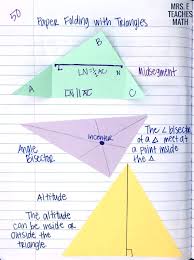 MRS. E
TEACHES
MATH
50
Paper Folding with Triangles
B
L
LN=½AC
N
Midsegment
LN||AC
A
C
The ∠ bisector
of a △ meet at
a point inside
the △
Incenter
Angle
Bisector
Altitude
The altitude
can be inside or
outside the
triangle